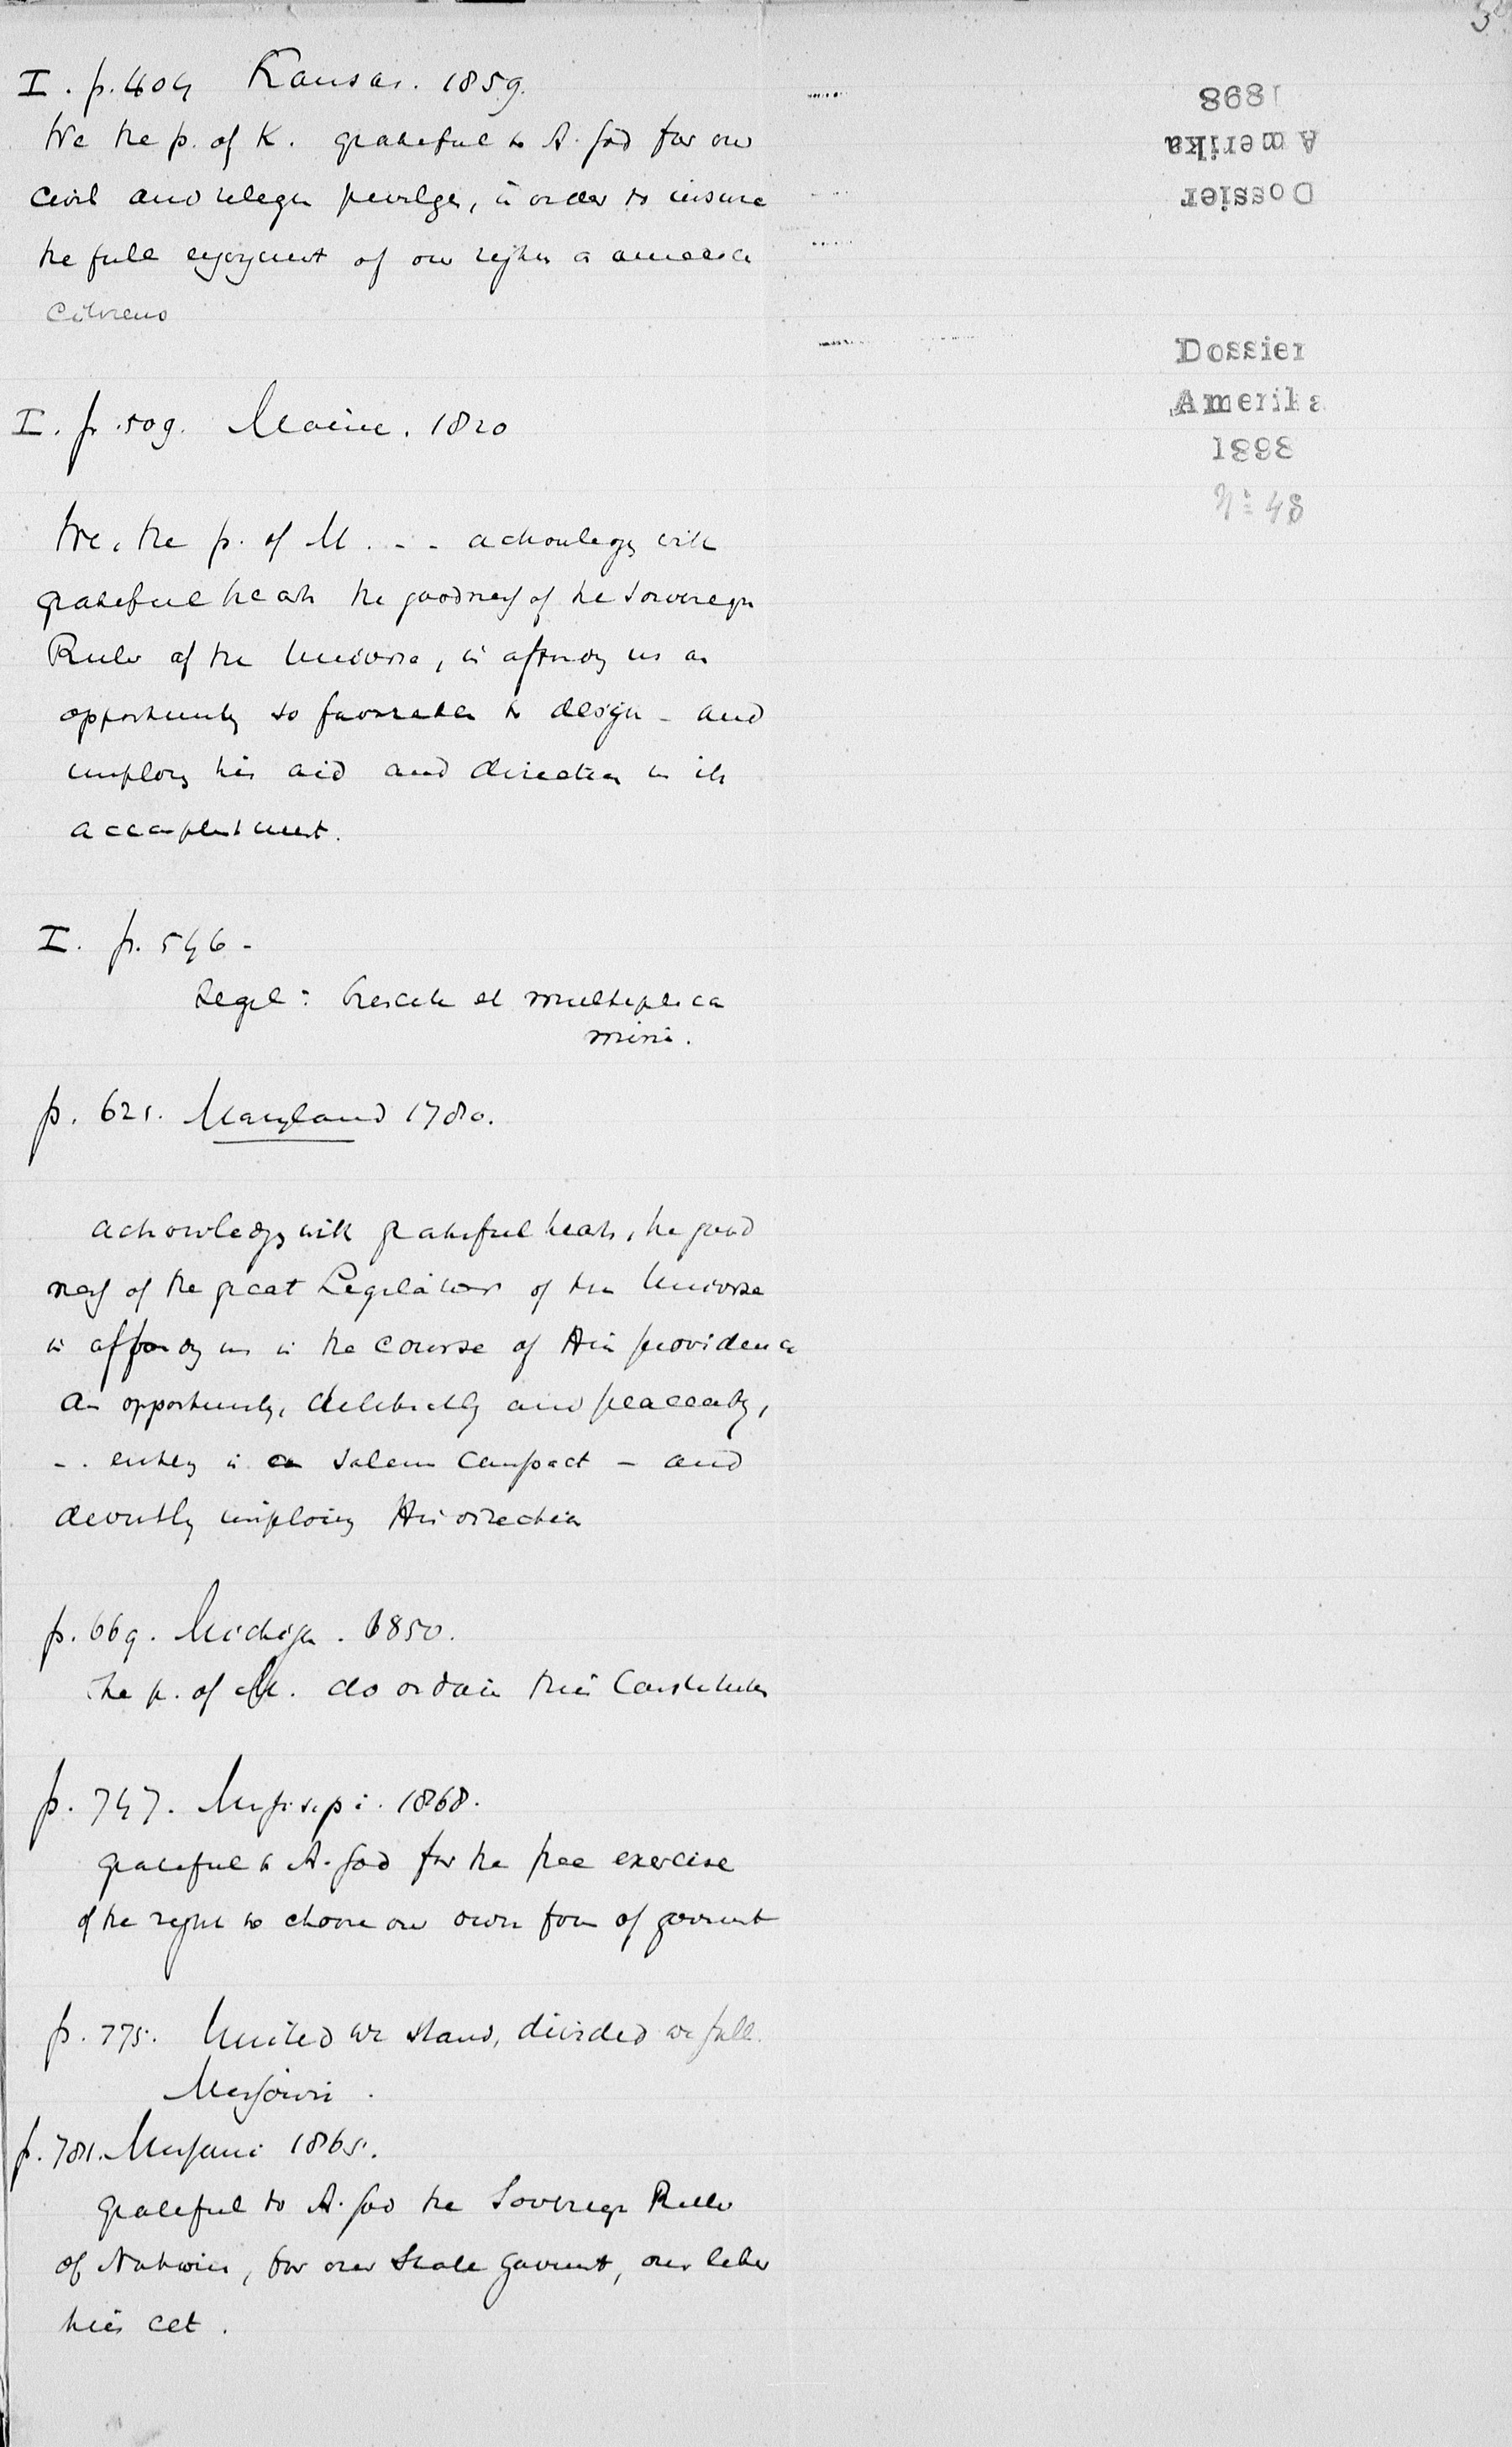 I. p. 404 Kansas. 1859.
We the p. of K. grateful to A. God for our
civil and religs privilges, in order to insure
the full enjoyment of our rights as america
Citizens
I. p. 509. Maine. 1820
We, the p. of M. - - acknowlegg with
grateful hearts the goodness of the Sovereign
Ruler of the Universe, in affordg us an
opportunity so favorable to design - and
implorg his aid and direction in its
accomplishment.
I. p. 546 -
Regel: Crescite et multiplica
mini.
p. 625. Maryland 1780.
acknowledgg with grateful hearts, the good
ness of the great Legislator of the Universe
in affordg us in the course of His providence
an opportunity, deliberately and peaceably,
- . enterg in a solemn Compact - and
devoutly imploring His direction
p. 669. Michign. 1850.
The p. of M. do ordain this Constitution
p. 747. Missisipi. 1868.
grateful to A. God for the free exercise
of the right to choose our own form of goverment
p. 775. United we stand, divided we fall.
Missouri.
p. 781. Missouri 1865.
grateful to A. God the Sovereign Ruler
of Nations, for our State Goverment, our liber
ties cet.
Dossier
Amerika
1898
Dossier
Amerika
1898
No 48